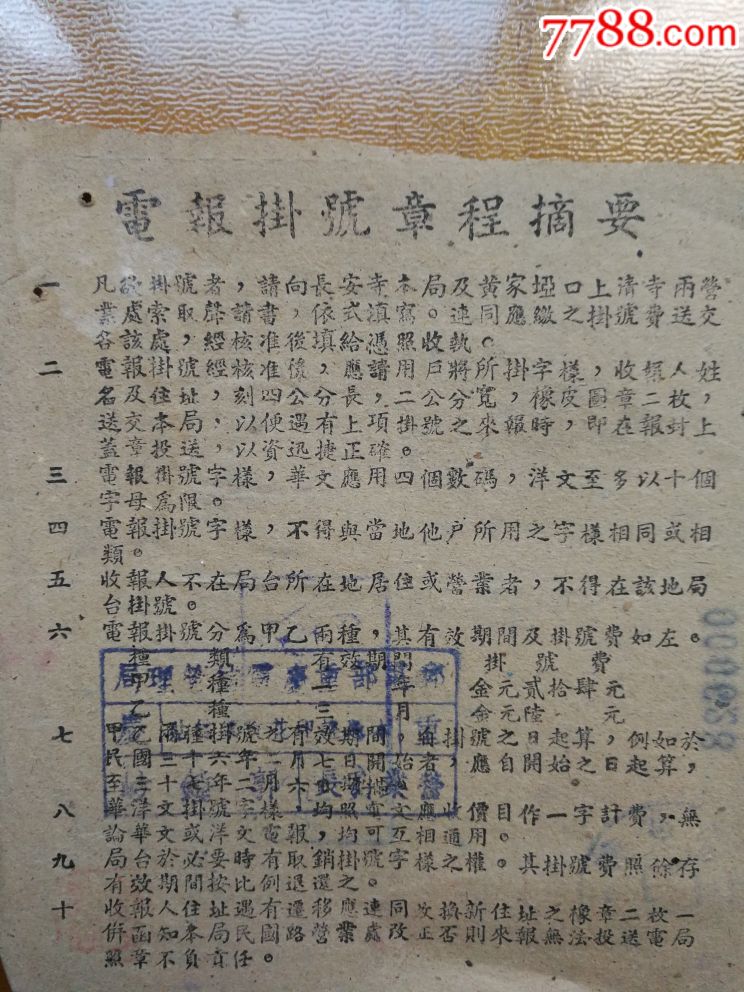 7788.com
電報掛號章程摘要
一 凡欲掛號者，請向長安寺本局及黃家埡口上清寺兩營
業處索取聲請書，依式填寫。連同應繳之掛號費送交
各該處，經核准後填給憑照收執。
二 電報掛號經核准後，應請用戶將所掛字樣，收報人姓
名及住址，刻四公分長，二公分寬，橡皮圖章二枚，
送交本局，以便遇有上項掛號之來報時，即在報封上
蓋章投送，以資迅捷正確。
三 電報掛號字樣，華文應用四個數碼，洋文至多以十個
字母為限。
四 電報掛號字樣，不得與當地他戶所用之字樣相同或相
類。
五 收報人不在局台所在地居住或營業者，不得在該地局
台掛號。
六 電報掛號分為甲乙兩種，其有效期間及掛號費如左。
種類 有效期間 掛號費
甲種 一年 金元貳拾肆元
乙種 三月 金元陸元
七 甲乙兩種掛號有效期間，自掛號之日起算，例如於
應自開始之日起算，
八 華洋文掛號字樣 均照 文 應收價目作一字計費，無
論華文或洋文電報均可互相通用。
九 局台於必要時有取銷掛號字樣之權。其掛號費照餘存
有效期間按比例退還之。
十 收報人住址遇有遷移應連同改換新住址之橡章二枚一
併函知本局國民路營業處改正否則來報無法投送電局
照章不負責任。
000638